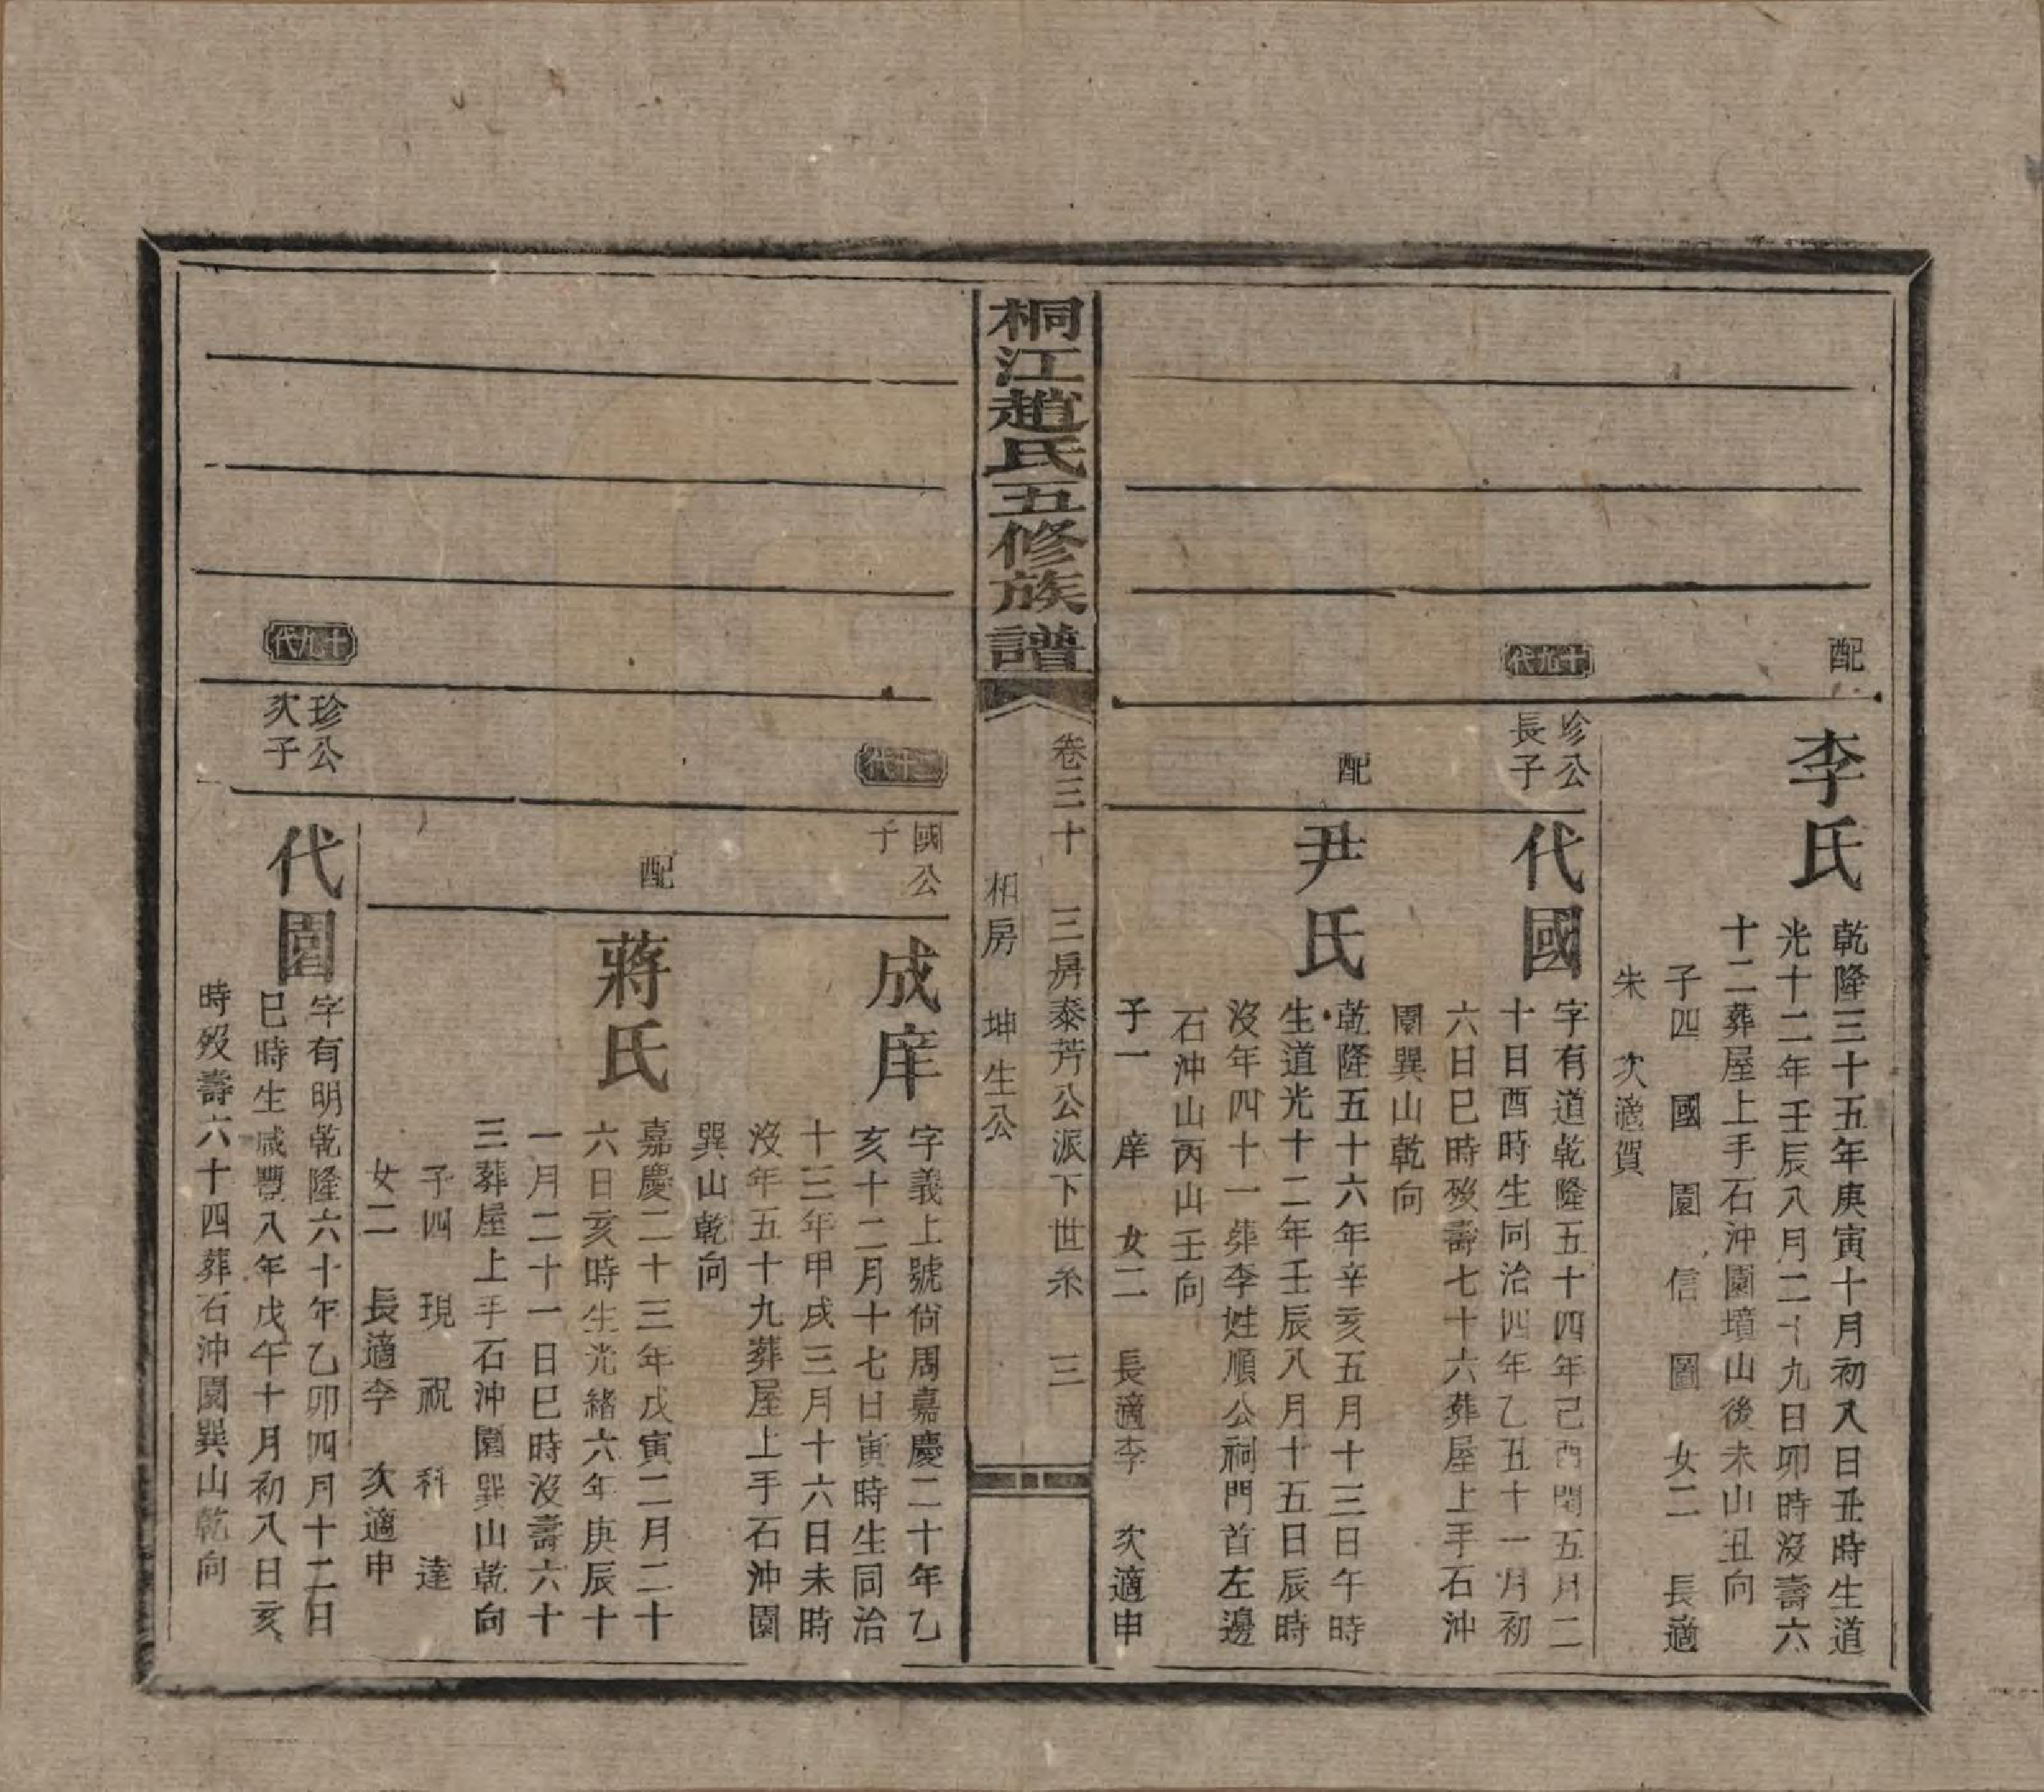 配
李氏
乾隆三十五年庚寅十月初八日丑時生道
光十二年壬辰八月二十九日卯時没壽六
十二葬屋上手石沖園墳山後未山丑向
子四 國 園 信 圖 女二 長適
朱 次適賀
十九代
珍公
長子
代國
字有道乾隆五十四年己酉閏五月二
十日酉時生同治四年乙丑十一月初
六日巳時歿壽七十六葬屋上手石沖
園巽山乾向
配
尹氏
乾隆五十六年辛亥五月十三日午時
生道光十二年壬辰八月十五日辰時
没年四十一葬李姓順公祠門首左邊
石沖山丙山壬向
子一 庠 女二 長適李 次適申
桐江趙氏五修族譜
卷三十 三房泰芳公派下世系 三
柏房 坤生公
二十代
國公
子
成庠
字義上號尙周嘉慶二十年乙
亥十二月十七日寅時生同治
十三年甲戌三月十六日未時
没年五十九葬屋上手石沖園
巽山乾向
配
蔣氏
嘉慶二十三年戊寅二月二十
六日亥時生光緒六年庚辰十
一月二十一日巳時没壽六十
三葬屋上手石沖園巽山乾向
子四 現 祝 科 達
女二 長適李 次適申
十九代
珍公
次子
代園
字有明乾隆六十年乙卯四月十二日
巳時生咸豐八年戊午十月初八日亥
時歿壽六十四葬石沖園巽山乾向